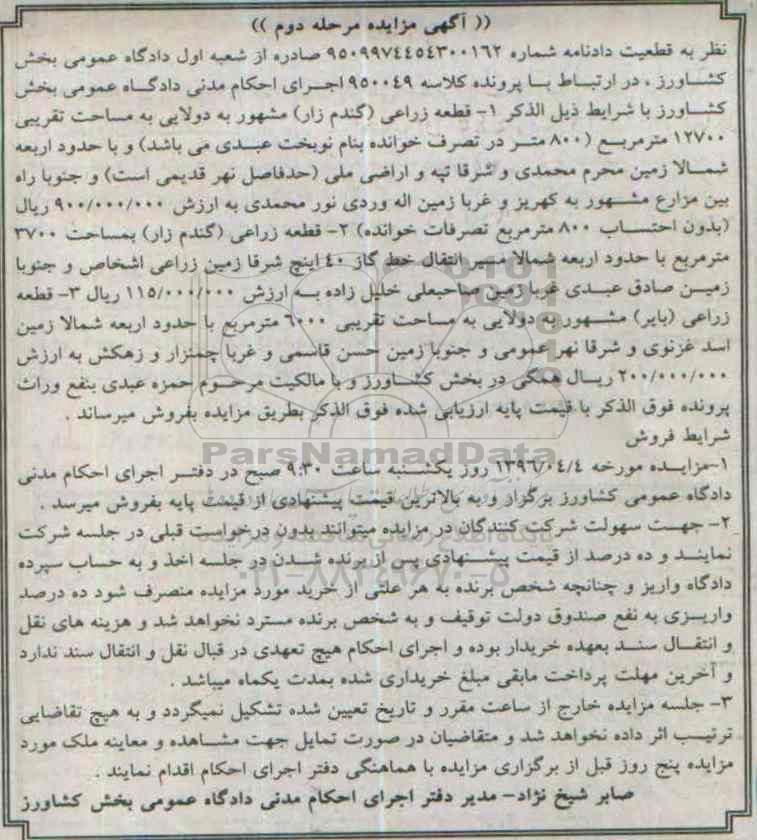 (( آگهی مزایده مرحله دوم ))
نظر به قطعیت دادنامه شماره ۹۵۰۹۹۷۴۴۵۴۳۰۰۱۶۲ صادره از شعبه اول دادگاه عمومی بخش
کشاورز ، در ارتباط با پرونده کلاسه ۹۵۰۰۴۹ اجرای احکام مدنی دادگاه عمومی بخش
کشاورز با شرایط ذیل الذکر ۱- قطعه زراعی (گندم زار) مشهور به دولایی به مساحت تقریبی
۱۲۷۰۰ مترمربع (۸۰۰ متر در تصرف خوانده بنام نوبخت عبدی می باشد) و با حدود اربعه
شمالا زمین محرم محمدی و شرقا تپه و اراضی ملی (حدفاصل نهر قدیمی است) و جنوبا راه
بین مزارع مشهور به کهریز و غربا زمین اله وردی نور محمدی به ارزش ۹۰۰/۰۰۰/۰۰۰ ریال
(بدون احتساب ۸۰۰ مترمربع تصرفات خوانده) ۲- قطعه زراعی (گندم زار) بمساحت ۳۷۰۰
مترمربع با حدود اربعه شمالا مسیر انتقال خط گاز ۴۰ اینچ شرقا زمین زراعی اشخاص و جنوبا
زمین صادق عبدی غربا زمین صاحبعلی خلیل زاده به ارزش ۱۱۵/۰۰۰/۰۰۰ ریال ۳- قطعه
زراعی (بایر) مشهور به دولایی به مساحت تقریبی ۶۰۰۰ مترمربع با حدود اربعه شمالا زمین
اسد غزنوی و شرقا نهر عمومی و جنوبا زمین حسن قاسمی و غربا چمنزار و زهکش به ارزش
۲۰۰/۰۰۰/۰۰۰ ریال همگی در بخش کشاورز و با مالکیت مرحوم حمزه عبدی بنفع وراث
پرونده فوق الذکر با قیمت پایه ارزیابی شده فوق الذکر بطریق مزایده بفروش میرساند .
شرایط فروش
۱-مزایده مورخه ۱۳۹۶/۰۴/۴ روز یکشنبه ساعت ۹:۳۰ صبح در دفتر اجرای احکام مدنی
دادگاه عمومی کشاورز برگزار و به بالاترین قیمت پیشنهادی از قیمت پایه بفروش میرسد .
۲- جهت سهولت شرکت کنندگان در مزایده میتوانند بدون درخواست قبلی در جلسه شرکت
نمایند و ده درصد از قیمت پیشنهادی پس از برنده شدن در جلسه اخذ و به حساب سپرده
دادگاه واریز و چنانچه شخص برنده به هر علتی از خرید مورد مزایده منصرف شود ده درصد
واریزی به نفع صندوق دولت توقیف و به شخص برنده مسترد نخواهد شد و هزینه های نقل
و انتقال سند بعهده خریدار بوده و اجرای احکام هیچ تعهدی در قبال نقل و انتقال سند ندارد
و آخرین مهلت پرداخت مابقی مبلغ خریداری شده بمدت یکماه میباشد .
۳- جلسه مزایده خارج از ساعت مقرر و تاریخ تعیین شده تشکیل نمیگردد و به هیچ تقاضایی
ترتیب اثر داده نخواهد شد و متقاضیان در صورت تمایل جهت مشاهده و معاینه ملک مورد
مزایده پنج روز قبل از برگزاری مزایده با هماهنگی دفتر اجرای احکام اقدام نمایند .
صابر شیخ نژاد- مدیر دفتر اجرای احکام مدنی دادگاه عمومی بخش کشاورز
ParsNamadData
۰۲۱-۸۸۳۴۹۶۷۰-۵